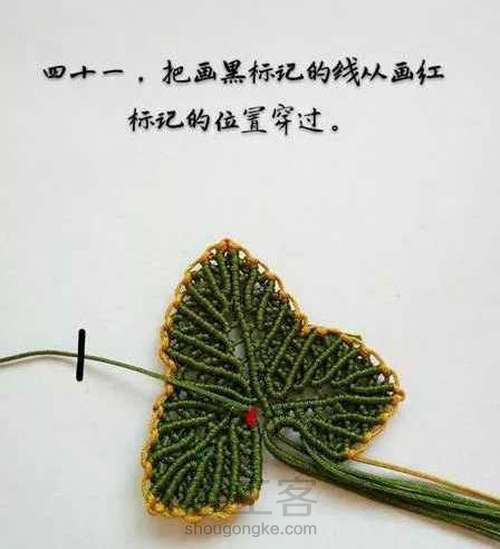 四十一，把画黑标记的线从画红
标记的位置穿过。
手工客
shougongke.com